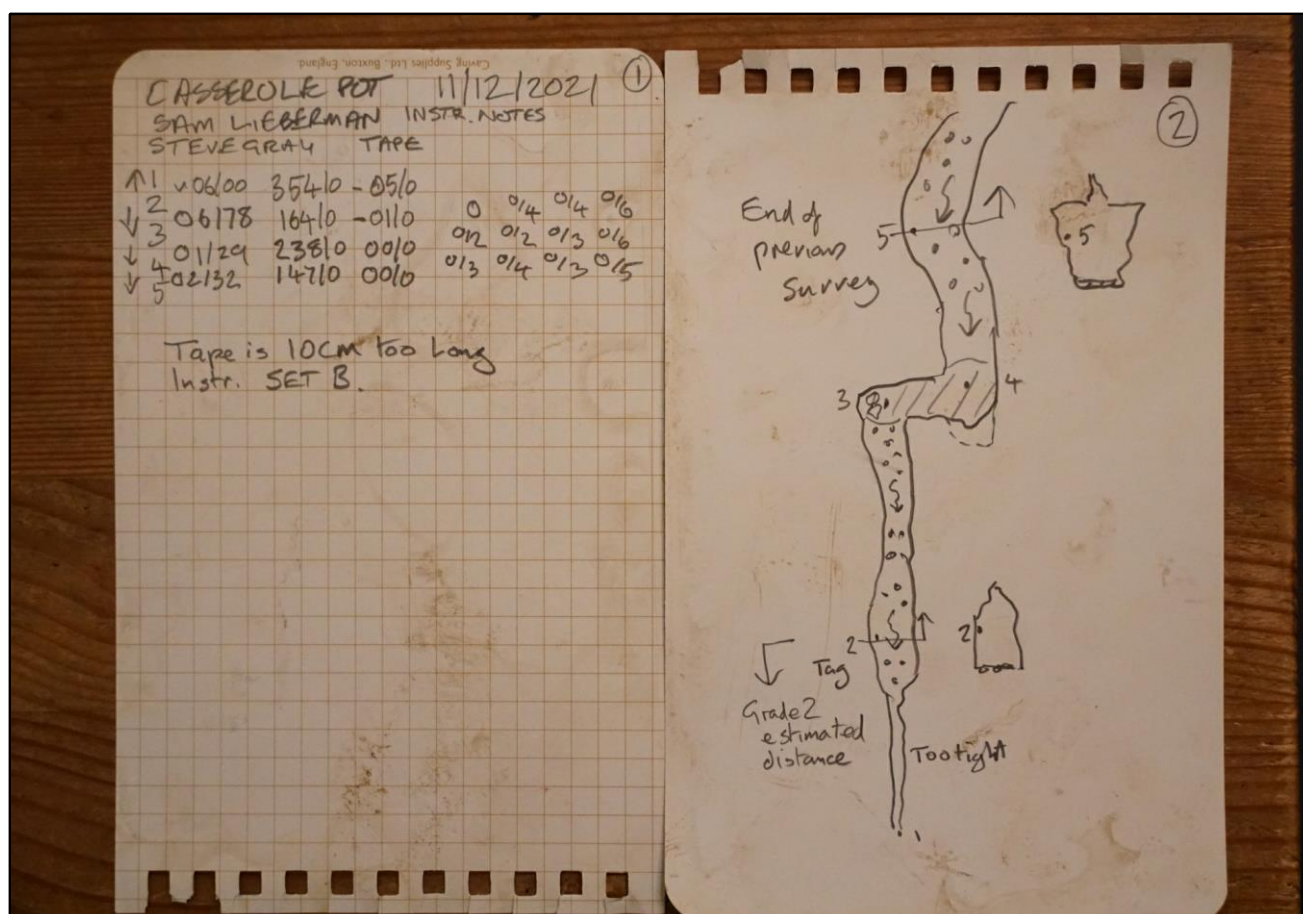 Caving Supplies Ltd., Buxton, England.
CASSEROLE POT 11/12/2021 1
SAM LIEBERMAN INSTR. NOTES
STEVE GRAY TAPE
↑ 1 ~06/00 354/0 -05/0
↓ 2 06/78 164/0 -01/0 0 0/4 0/4 0/6
↓ 3 01/29 238/0 00/0 0/2 0/2 0/3 0/6
↓ 4 02/32 147/0 00/0 0/3 0/4 0/3 0/5
5
Tape is 10cm too Long
Instr. SET B.
2
End of
previous
Survey
5
5
3
4
2
2
Tag
Grade 2
estimated
distance
Too tight